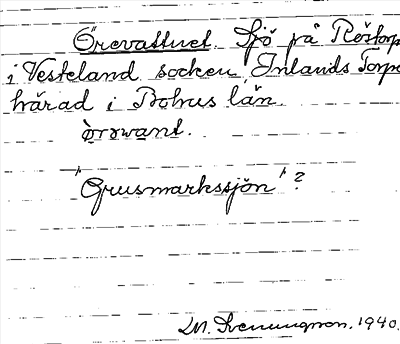 Örevattnet. Sjö på Röstorp
i Vesteland socken, Inlands Torpe
härad i Bohus län.
òrəvant.
"Grusmarkssjön"?
M. Svenungson. 1940.